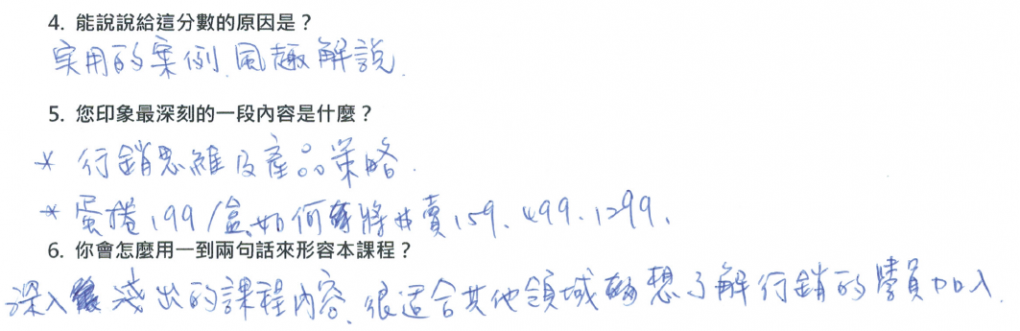 4. 能說說給這分數的原因是？
实用的案例、風趣解說.
5. 您印象最深刻的一段內容是什麼？
* 行銷思維及產品策略.
* 蛋捲199/盒如何將其賣159、499、1299.
6. 你會怎麼用一到兩句話來形容本課程？
深入淺出的課程內容、很適合其他領域想了解行銷的學員加入.